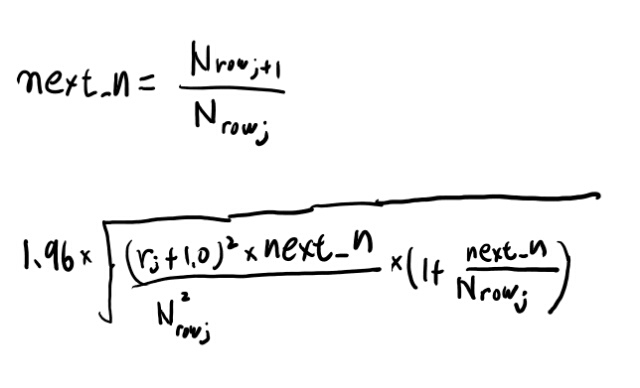 next_n = N_{row_{j+1}} / N_{row_j}
1.96 × √( (r_j + 1.0)^2 × next_n / N^2_{row_j} × (1 + next_n / N_{row_j}) )